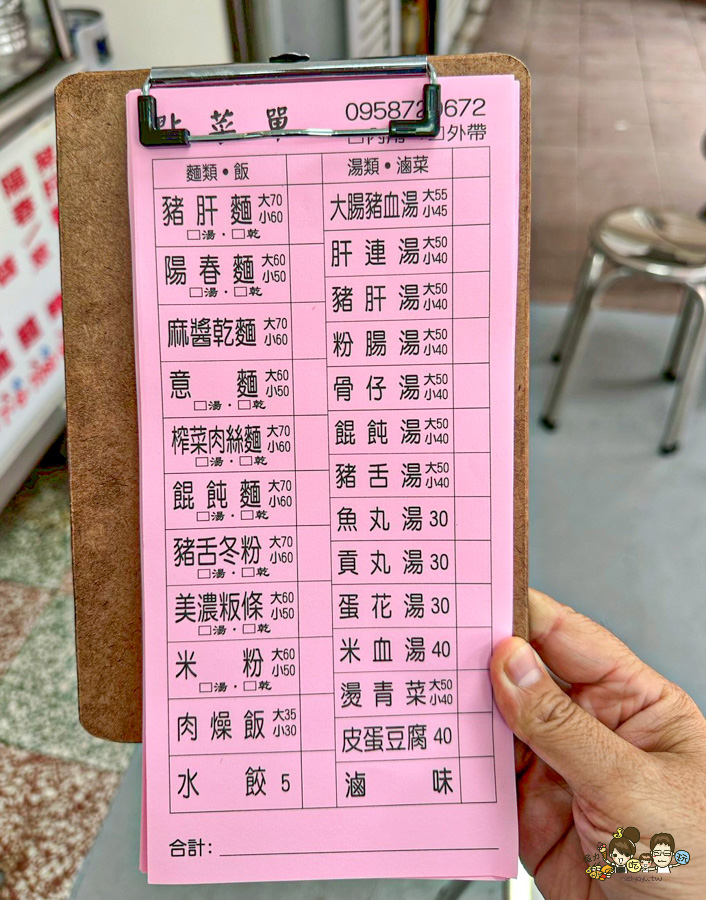 點菜單
外帶
麵類・飯
豬肝麵 大70 小60
□湯・□乾
陽春麵 大60 小50
□湯・□乾
麻醬乾麵 大70 小60
意麵 大60 小50
□湯・□乾
榨菜肉絲麵 大70 小60
□湯・□乾
餛飩麵 大70 小60
□湯・□乾
豬舌冬粉 大70 小60
□湯・□乾
美濃粄條 大60 小50
□湯・□乾
米粉 大60 小50
□湯・□乾
肉燥飯 大35 小30
水餃 5
湯類・滷菜
大腸豬血湯 大55 小45
肝連湯 大50 小40
豬肝湯 大50 小40
粉腸湯 大50 小40
骨仔湯 大50 小40
餛飩湯 大50 小40
豬舌湯 大50 小40
魚丸湯 30
貢丸湯 30
蛋花湯 30
米血湯 40
燙青菜 大50 小40
皮蛋豆腐 40
滷味
合計：